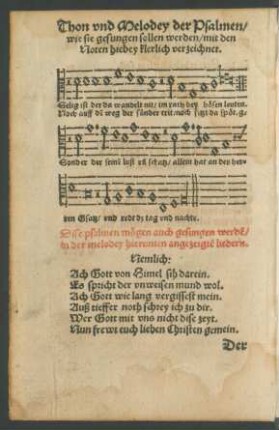 Thon vnd Melodey der Psalmen/
wie sie gesungen sollen werden/ mit den
Noten hiebey klerlich verzeichnet.
Selig ist der da wandelt nit/ im radt der bösen leuten.
Noch auff dē weg der sünder trit/ noch sitzt da spöt.
Sonder der seinē lust vñ schatz/ allein hat an der her-
ren Gsatz/ vnd redt dz tag vnd nachte.
Dise psalmen mögen auch gesungen werdē/
in der melodey hierunten angezeigtē liedern.
Nemlich:
Ach Gott von Himel sih darein.
Es spricht der vnweisen mund wol.
Ach Gott wie lang vergissest mein.
Auß tieffer noth schrey ich zu dir.
Wer Gott mit vns nicht dise zeyt.
Nun frewt euch lieben Christen gemein.
Der